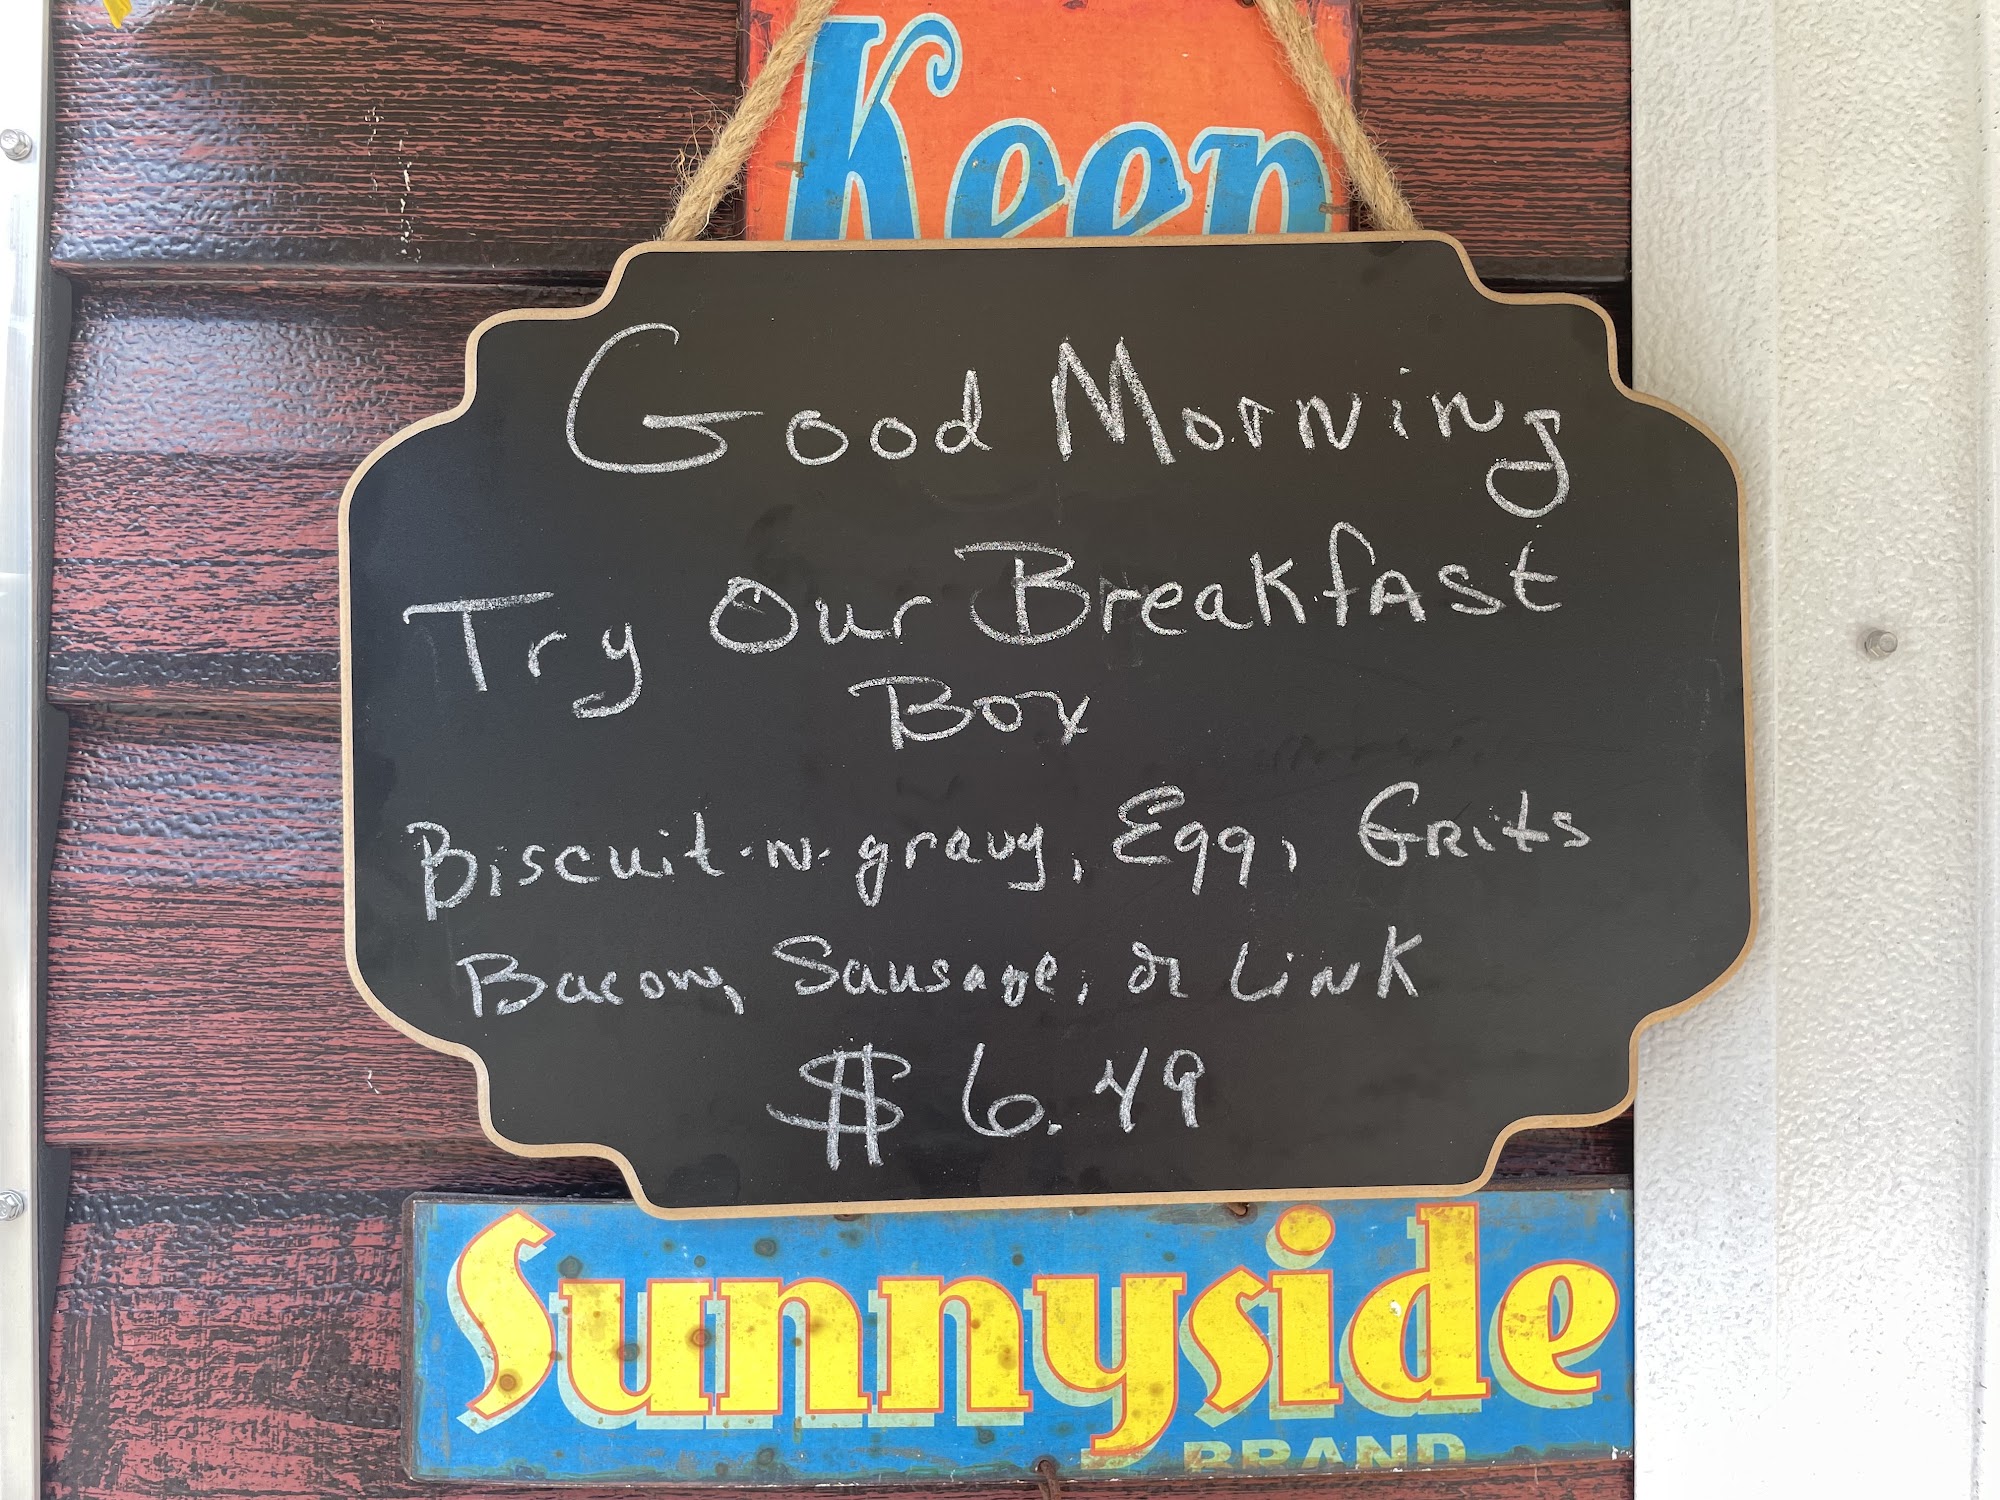 Keep
Good Morning
Try Our Breakfast
Box
Biscuit-n-gravy, Egg, Grits
Bacon, Sausage, or Link
$6.49
Sunnyside
BRAND